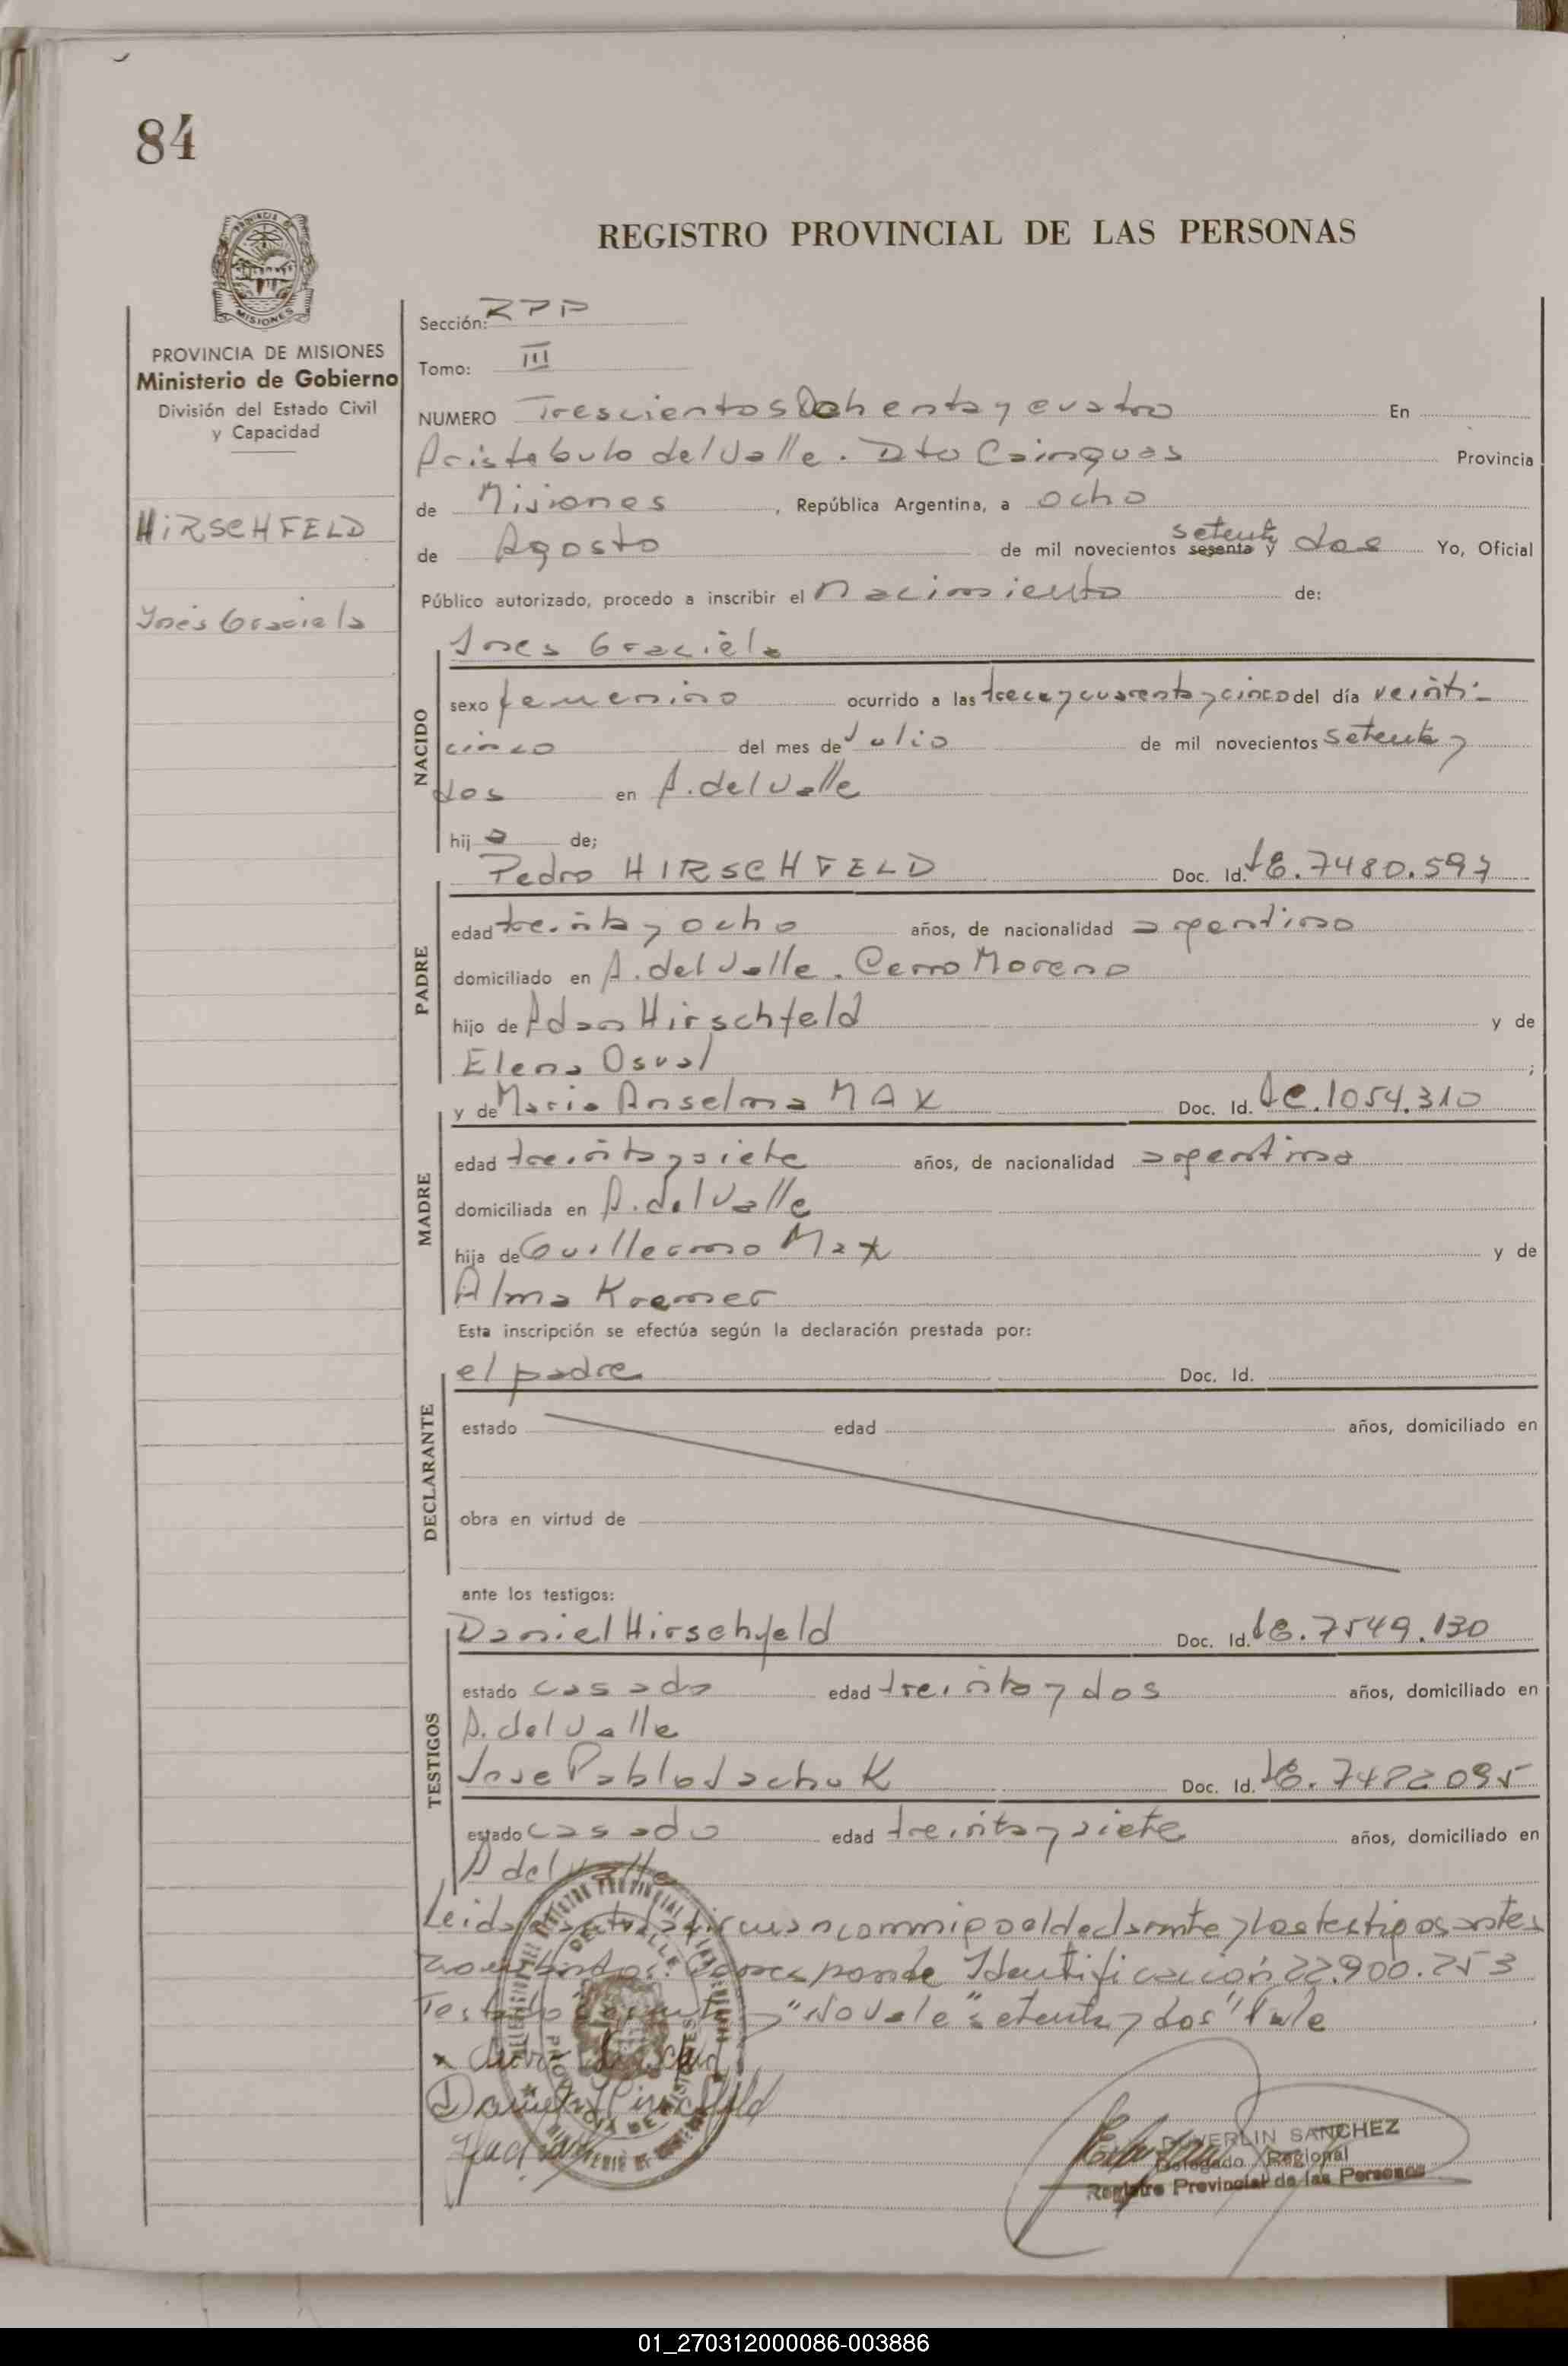 84
REGISTRO PROVINCIAL DE LAS PERSONAS
PROVINCIA DE MISIONES
Ministerio de Gobierno
División del Estado Civil
y Capacidad
HIRSCHFELD
Inés Graciela
Sección: RPP
Tomo: III
NUMERO Trescientos Ochenta y cuatro En
Aristobulo del Valle. Dto Cainguas Provincia
de Misiones, República Argentina, a ocho
de Agosto de mil novecientos sesenta y setenta dos Yo, Oficial
Público autorizado, procedo a inscribir el nacimiento de:
NACIDO
Ines Graciela
sexo femenino ocurrido a las trece y cuarenta y cinco del día veinti-
cinco del mes de Julio de mil novecientos setenta y
dos en A. del Valle
hij a de;
PADRE
Pedro HIRSCHFELD Doc. Id. LE. 7480.597
edad treinta y ocho años, de nacionalidad argentino
domiciliado en A. del Valle. Cerro Moreno
hijo de Adan Hirschfeld y de
Elena Osval ;
MADRE
y de Maria Anselma MAX Doc. Id. LC. 1054.310
edad treinta y siete años, de nacionalidad argentina
domiciliada en A. del Valle
hija de Guillermo Max y de
Alma Kremer
Esta inscripción se efectúa según la declaración prestada por:
DECLARANTE
el padre Doc. Id.
estado edad años, domiciliado en
obra en virtud de
ante los testigos:
TESTIGOS
Daniel Hirschfeld Doc. Id. LE. 7549.130
estado casado edad treinta y dos años, domiciliado en
A. del Valle
Jose Pablo Doc. Id. LE. 7482095
estado casado edad treinta y siete años, domiciliado en
A del Valle
Leida el acta la firman conmigo el declarante y los testigos antes
nombrados. Corresponde Identificación 22.900.253
Testado sesenta y "No vale" setenta y dos "Vale
Daniel Hirschfeld
DUVERLIN SANCHEZ
Delegado Regional
Registro Provincial de las Personas
REGISTRO PROVINCIAL
DEL VALLE
PROVINCIA DE MISIONES
01_270312000086-003886